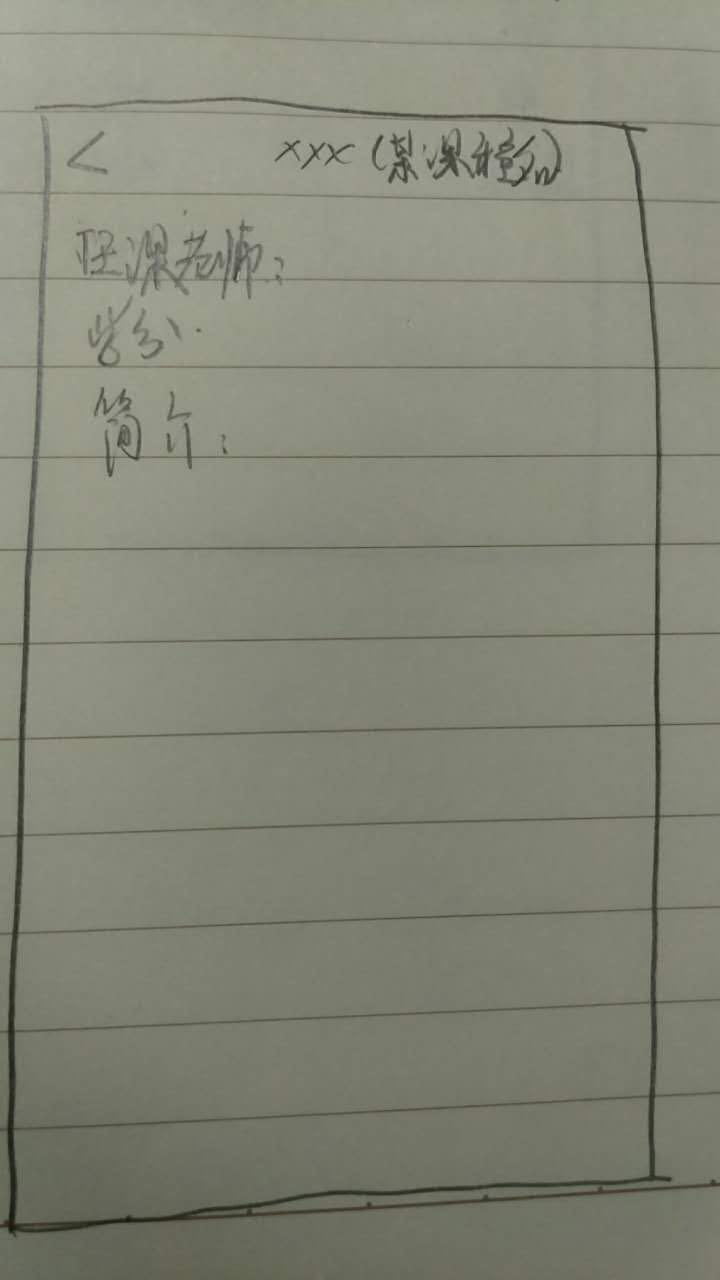 < xxx (某课程名)
任课老师:
学分:
简介: